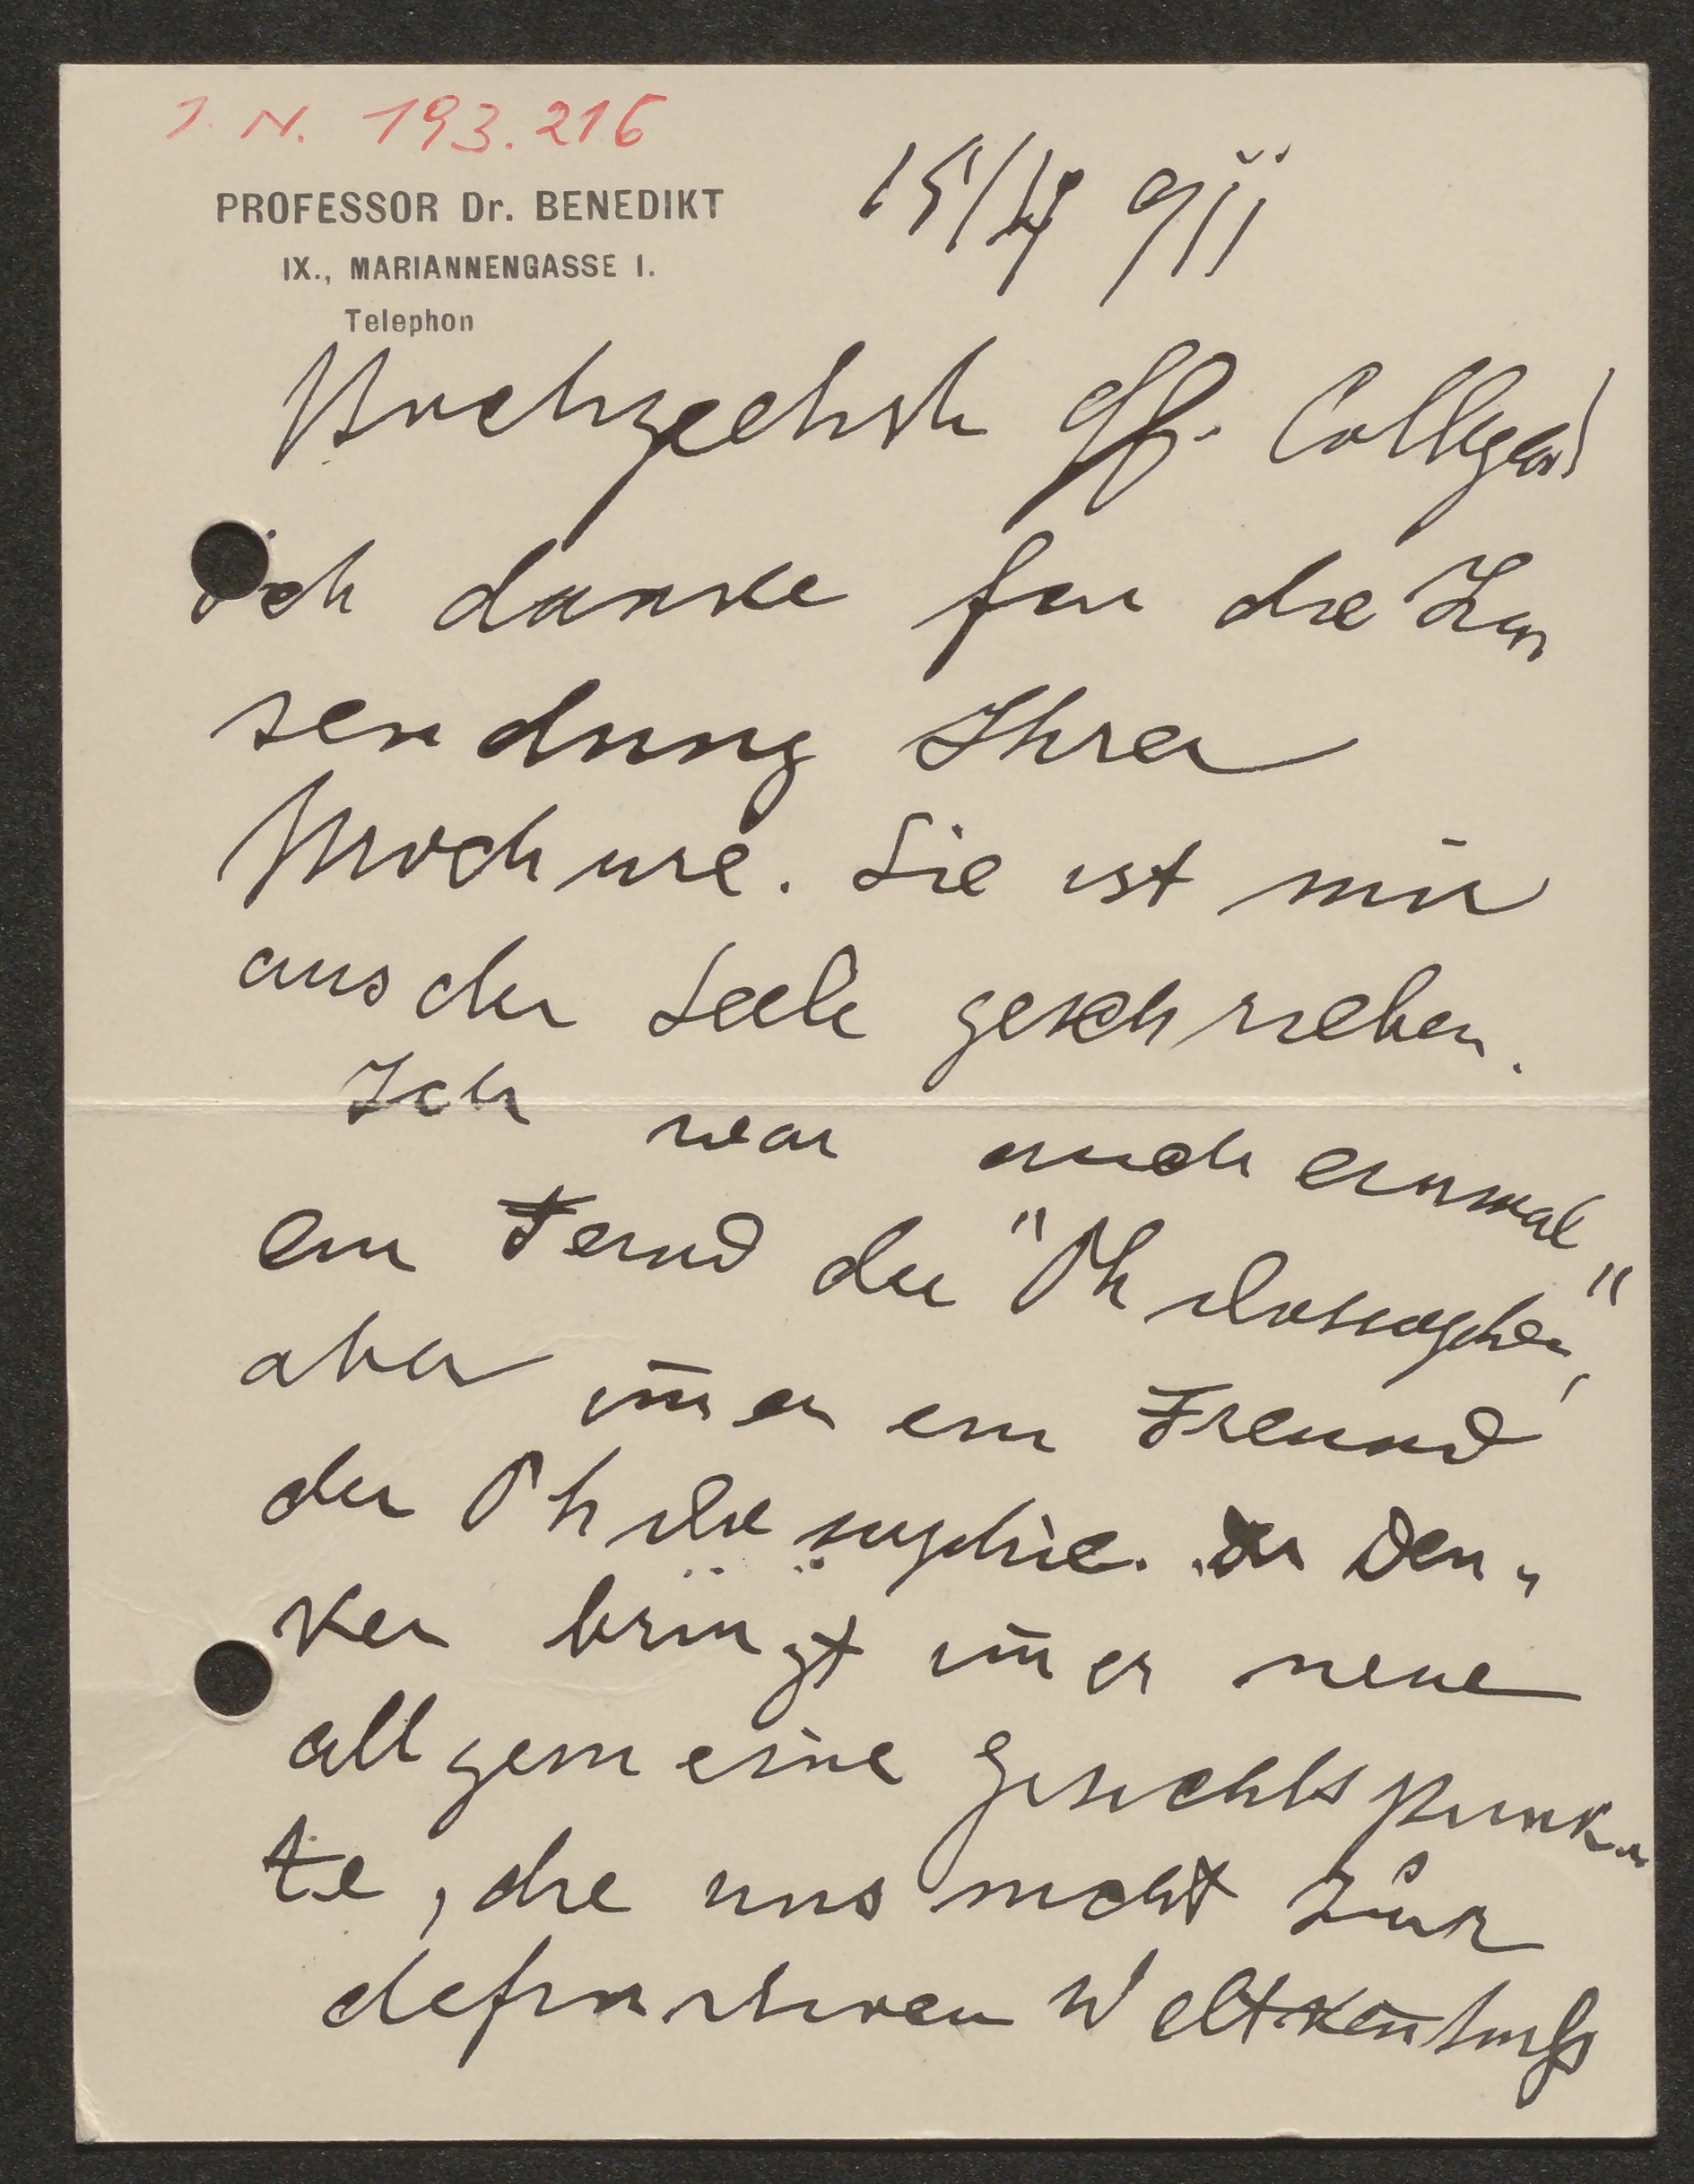 I. N. 193.216
PROFESSOR Dr. BENEDIKT
IX., MARIANNENGASSE I.
Telephon
15/ 911
Hochgeehrter H. College!
ich danke für die Zu
sendung Ihrer
Broch ure. Sie ist mir
aus der Seele geschrieben.
Ich war auch einmal
ein Feind der "Philosophen,"
aber im̄er ein Freund
der Philosophie. Der Den„
ker bringt im̄er neue
allgemeine Gesichtspunk„
te, die uns nicht zur
definitiven Weltken̄tniß